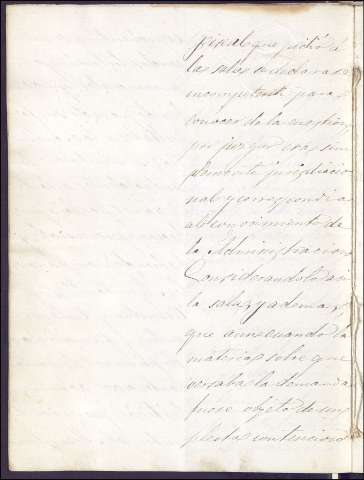 fiscal que pidió á
las salas se declarase
incompetente para
conocer de la cuestion,
por juzgar era sim
plemente jurisdiccio
nal y correspondia
al conocimiento de
la Administracion
Considerandolo asi
la sala, y ademas,
que aun cuando la
materia sobre que
versaba la demanda
fuese objeto de un
pleito contencioso